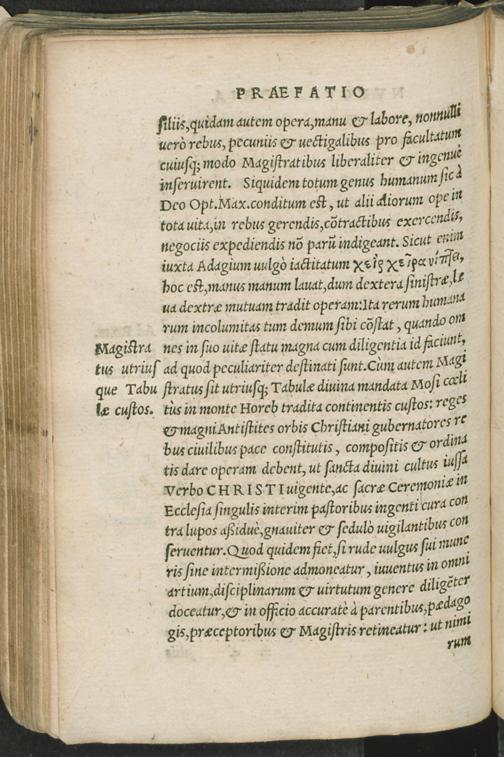 PRAEFATIO
siliis, quidam autem opera, manu & labore, nonnulli
verò rebus, pecuniis & vectigalibus pro facultatum
cuiusq; modo Magistratibus liberaliter & ingenuè
inservirent. Siquidem totum genus humanum sic à
Deo Opt. Max. conditum est, ut alii aliorum ope in
tota vita, in rebus gerendis, cõtractibus exercendis,
negociis expediendis nõ parũ indigeant. Sicut enim
iuxta Adagium vulgò iactitatum χεὶρ χεῖρα νίπτει,
hoc est, manus manum lavat, dum dextera sinistræ, læ
va dextræ mutuam tradit operam: Ita rerum humana
rum incolumitas tum demum sibi cõstat, quando om
nes in suo vitæ statu magna cum diligentia id faciunt,
ad quod peculiariter destinati sunt. Cùm autem Magi
stratus sit utriusq; Tabulæ divina mandata Mosi cœli
tùs in monte Horeb tradita continentis custos: reges
& magni Antistites orbis Christiani gubernatores re
bus civilibus pace constitutis, compositis & ordina
tis dare operam debent, ut sancta divini cultus iussa
Verbo CHRISTI vigente, ac sacræ Ceremoniæ in
Ecclesia singulis interim pastoribus ingenti cura con
tra lupos aßiduè, gnaviter & sedulò vigilantibus con
serventur. Quod quidem fiet, si rude vulgus sui mune
ris sine intermißione admoneatur, iuventus in omni
artium, disciplinarum & virtutum genere diligẽter
doceatur, & in officio accuratè à parentibus, pædago
gis, præceptoribus & Magistris retineatur: ut nimi
rum
Magistra
tus utrius
que Tabu
læ custos.